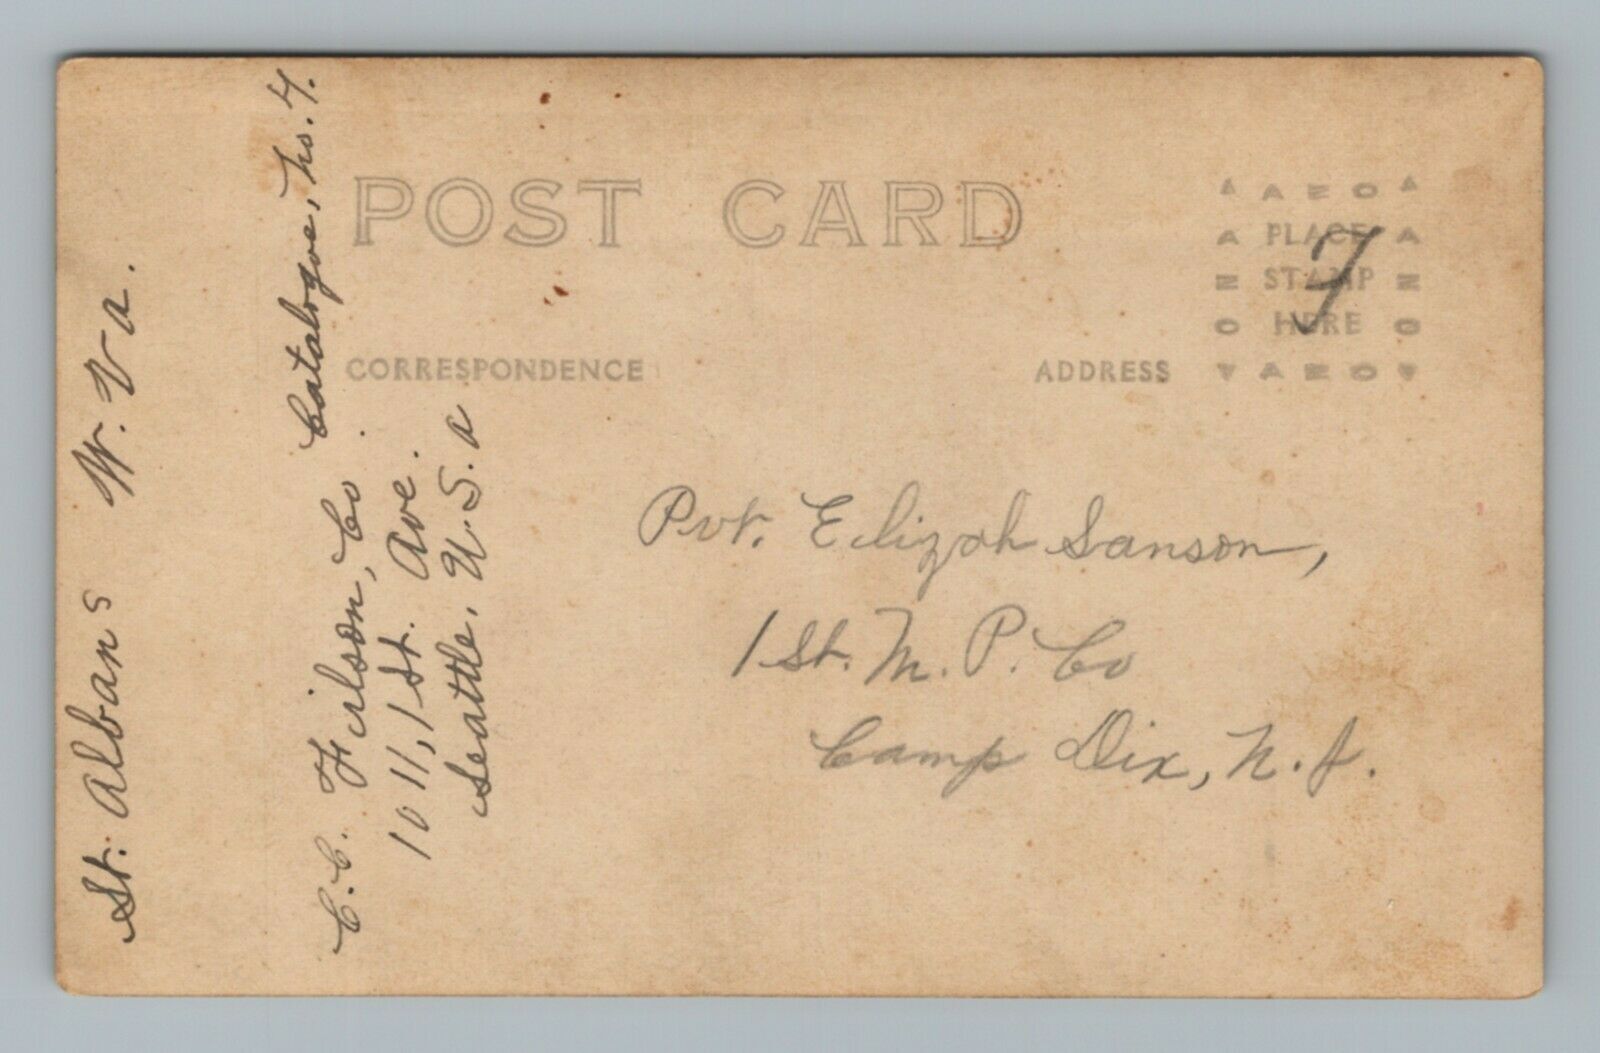 POST CARD
CORRESPONDENCE
ADDRESS
AZO
PLACE
STAMP
HERE
AZO
7
Pvt. Elizah Sanson,
1 St. M. P. Co
Camp Dix, N. J.
St. Albans W. Va.
C. C. Filson, Co. Catalogue, no. 7.
1011, 1 St. Ave.
Seattle, U. S. a